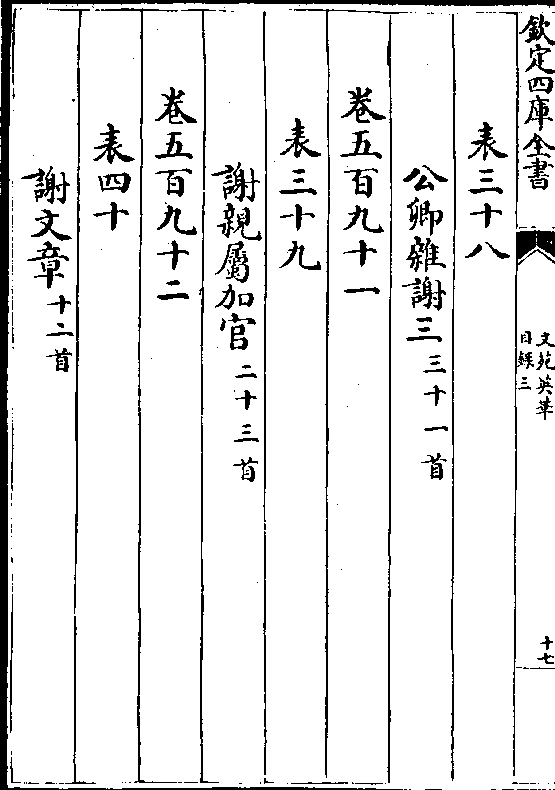 欽定四庫全書
文苑英華
目録三
十七
表三十八
公卿雜謝三三十一首
卷五百九十一
表三十九
謝親屬加官二十三首
卷五百九十二
表四十
謝文章十二首